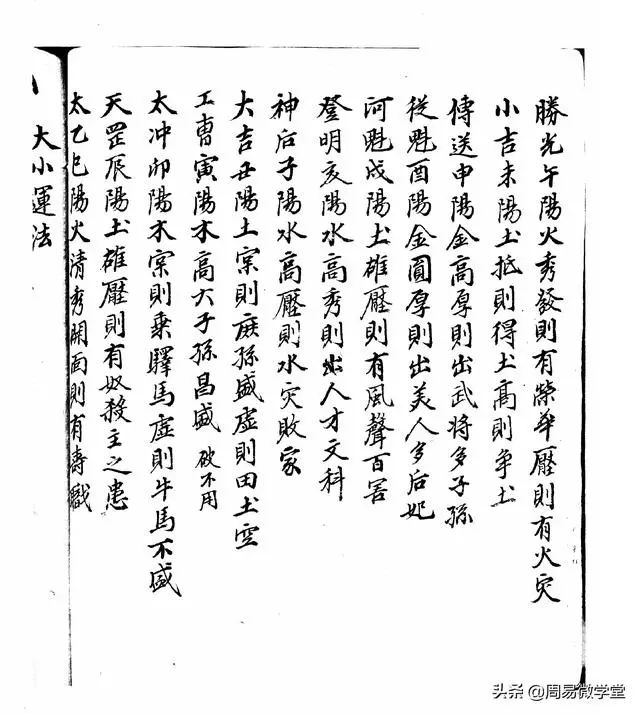 勝光午陽火秀發則有榮華壓則有火灾
小吉未陽土抵則得土高則争土
傳送申陽金高厚則出武将多子孫
從魁酉陽金圓厚則出美人多后妃
河魁戌陽土雄壓則有風聲百害
登明亥陽水高秀則出人才文科
神后子陽水高壓則水灾敗家
大吉丑陽土寀則庶孫盛虚則田土空
工曹寅陽木高大子孫昌盛 破不用
太冲卯陽木寀則乗驛馬虚則牛馬不盛
天罡辰陽土雄壓則有奴殺主之患
太乙巳陽火清秀開面則有壽職
大小運法
头条 @周易微学堂